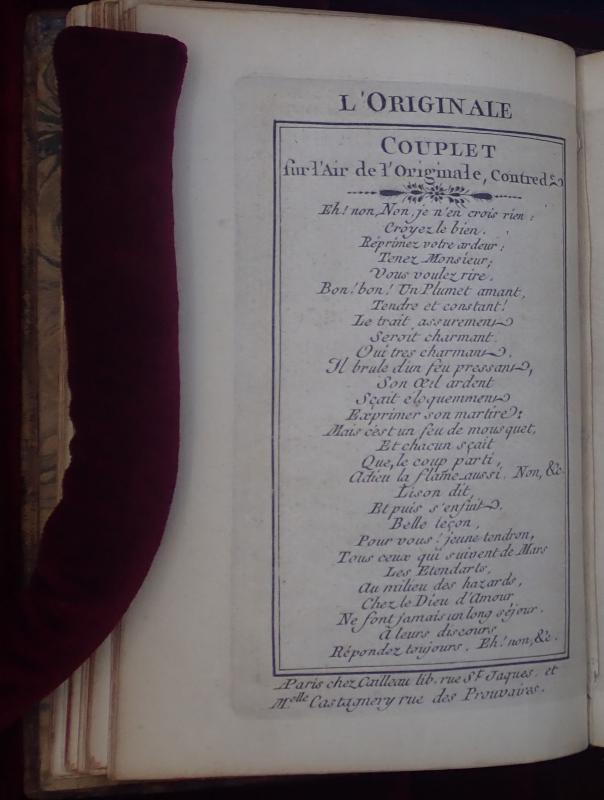 L'ORIGINALE
COUPLET
sur l'Air de l'Originale, Contred.
Eh! non, Non, je n'en crois rien;
Croyez le bien.
Réprimez votre ardeur;
Tenez Monsieur;
Vous voulez rire.
Bon! bon! Un Plumet amant,
Tendre et constant!
Le trait assurement
Seroit charmant.
Oui tres charmant.
Il brule d'un feu pressant,
Son Œil ardent
Sçait eloquemment
Exprimer son martire:
Mais c'est un feu de mousquet,
Et chacun sçait
Que, le coup parti,
Adieu la flame aussi. Non, &c.
Lison dit,
Et puis s'enfuit.
Belle leçon,
Pour vous! jeune tendron,
Tous ceux qui suivent de Mars
Les Etendarts,
Au milieu des hazards,
Chez le Dieu d'Amour
Ne font jamais un long séjour.
A leurs discours
Répondez toujours. Eh! non, &c.
A Paris chez Cailleau lib. rue St. Jaques. et
Melle Castagnery rue des Prouvaires.